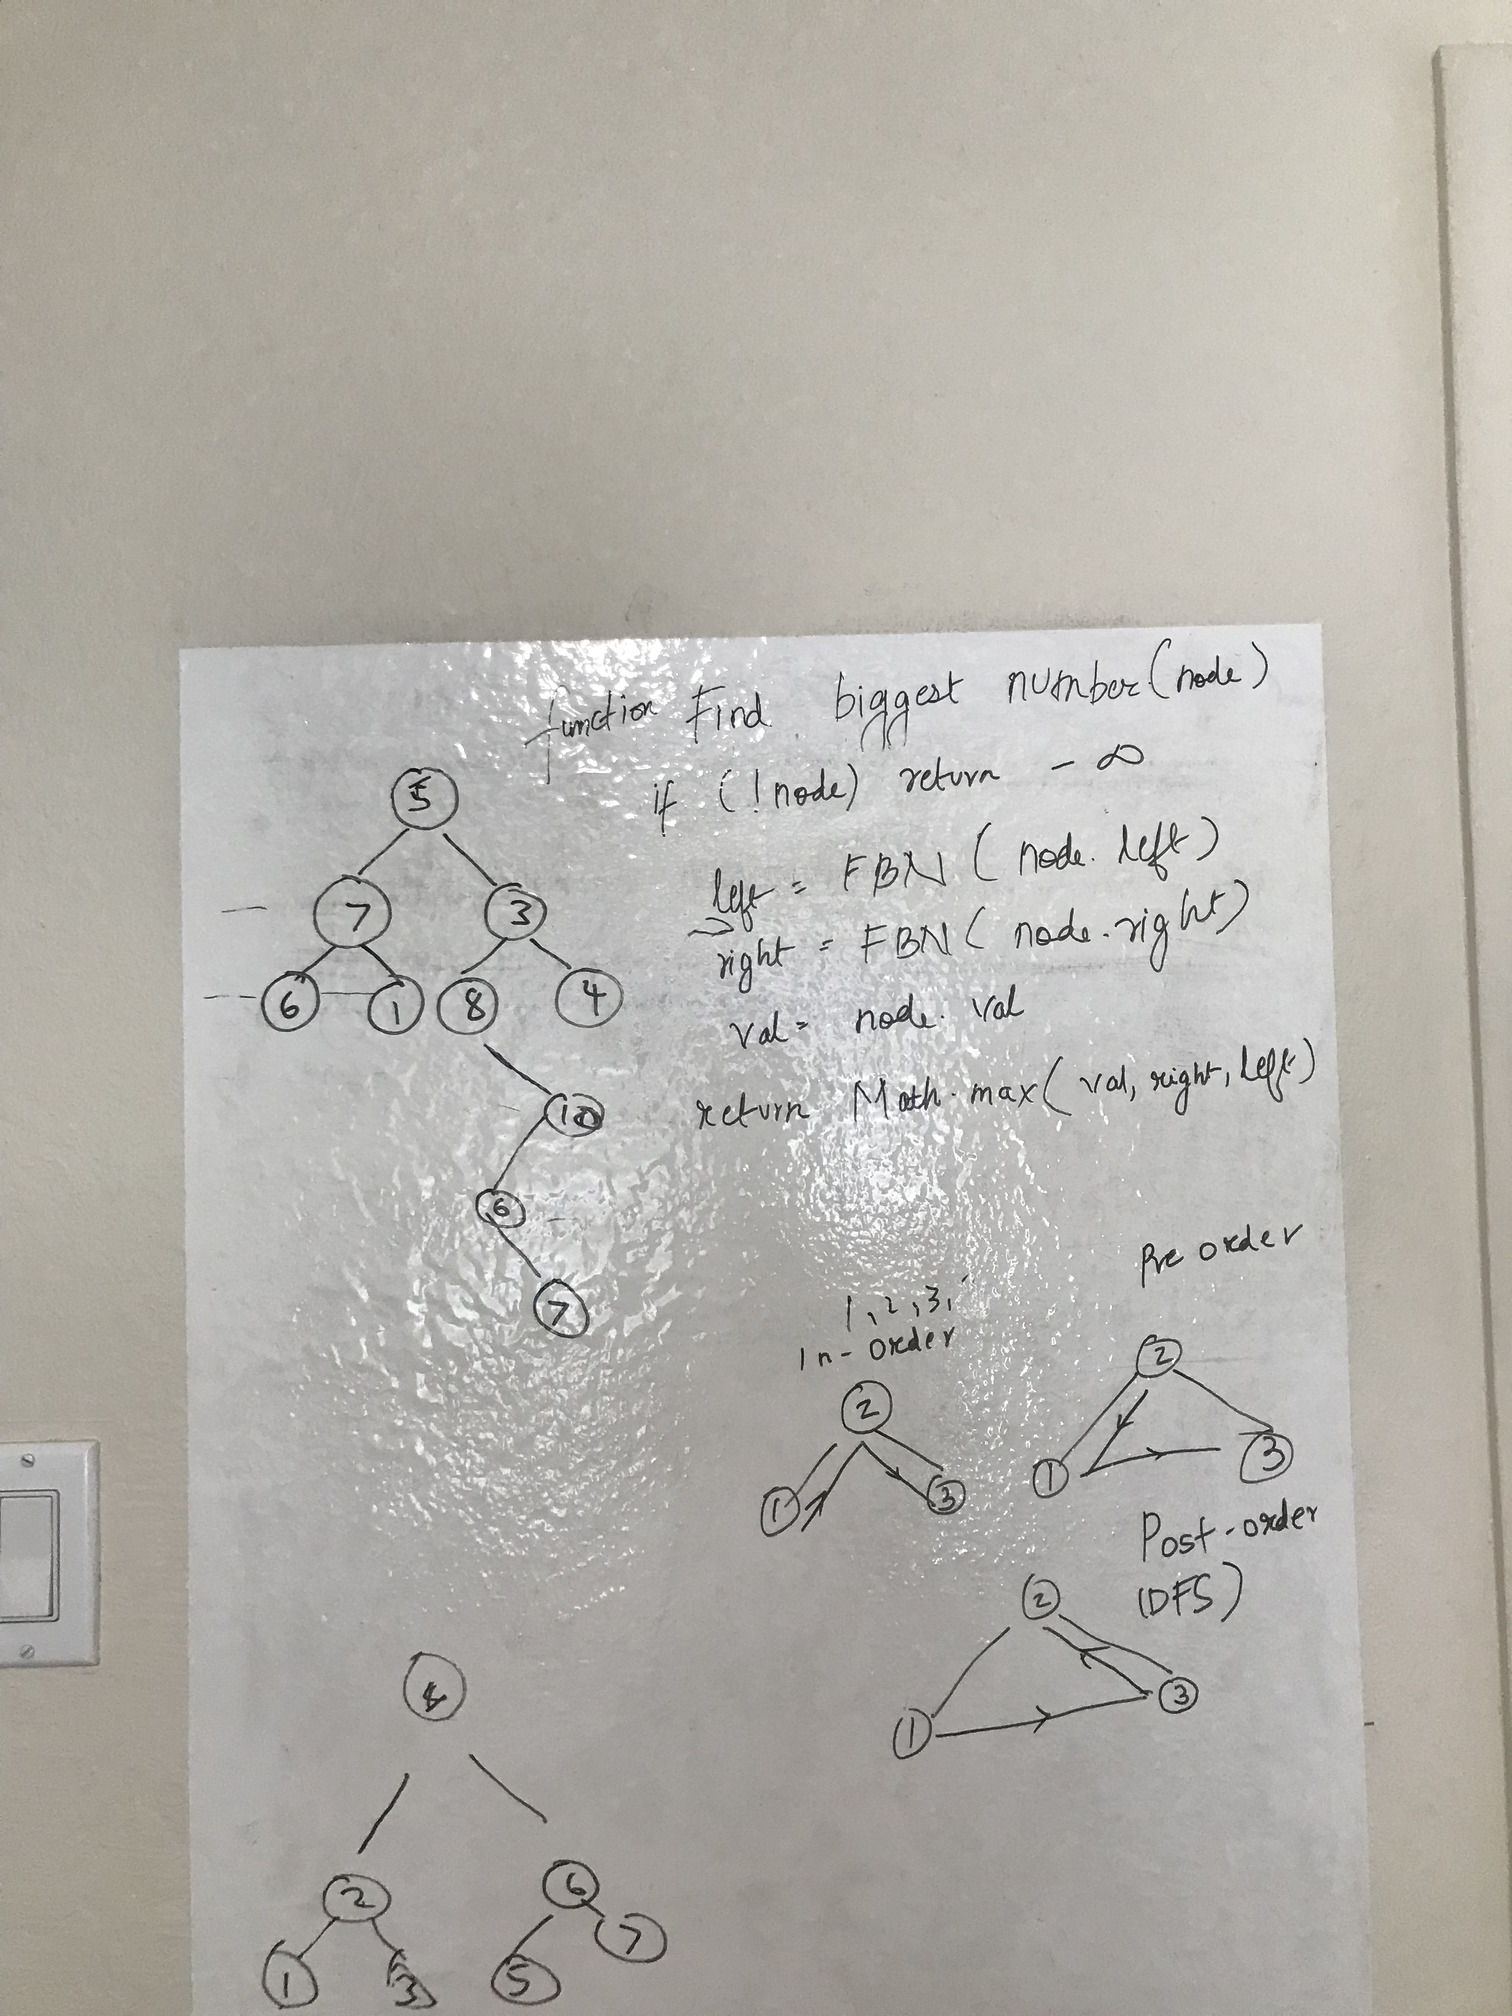 function Find biggest number(node)
if (!node) return - ∞
left = FBN ( node. left)
right = FBN ( node. right)
val = node. val
return Math. max( val, right, left)
5
7 3
6 1 8 4
10
6
7
1, 2, 3,
In-Order
2
1 3
Pre order
2
1 3
Post-order
(DFS)
2
1 3
2 6
1 3 5 7